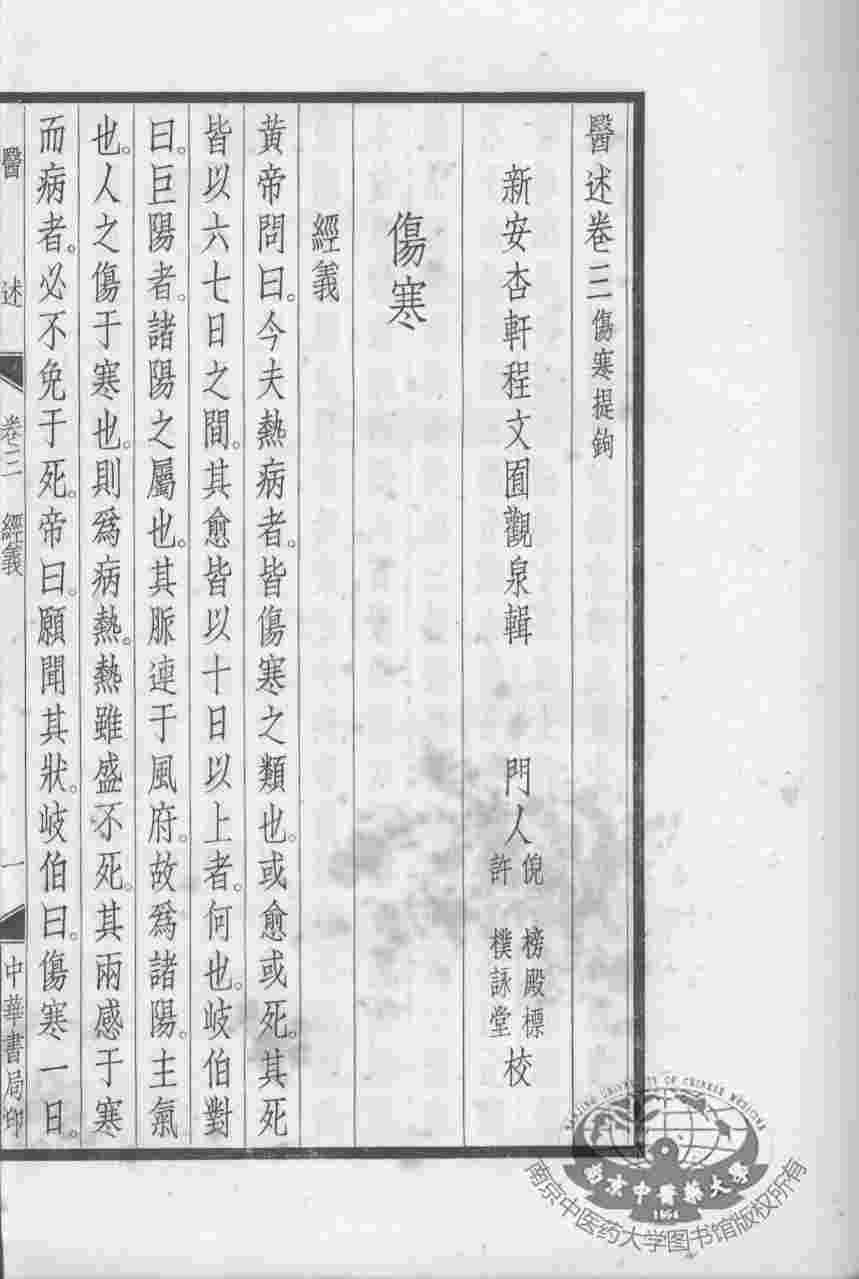 醫述卷三傷寒提鉤
新安杏軒程文囿觀泉輯 門人倪榜殿標許樸詠堂校
傷寒
經義
黃帝問曰。今夫熱病者。皆傷寒之類也。或愈或死。其死
皆以六七日之間。其愈皆以十日以上者。何也。岐伯對
曰。巨陽者。諸陽之屬也。其脈連于風府。故爲諸陽。主氣
也。人之傷于寒也。則爲病熱。熱雖盛不死。其兩感于寒
而病者。必不免于死。帝曰。願聞其狀。岐伯曰。傷寒一日。
醫述 卷三 經義 一 中華書局印
NANJING UNIVERSITY OF CHINESE MEDICINE
南京中醫藥大學
1954
南京中医药大学图书馆版权所有